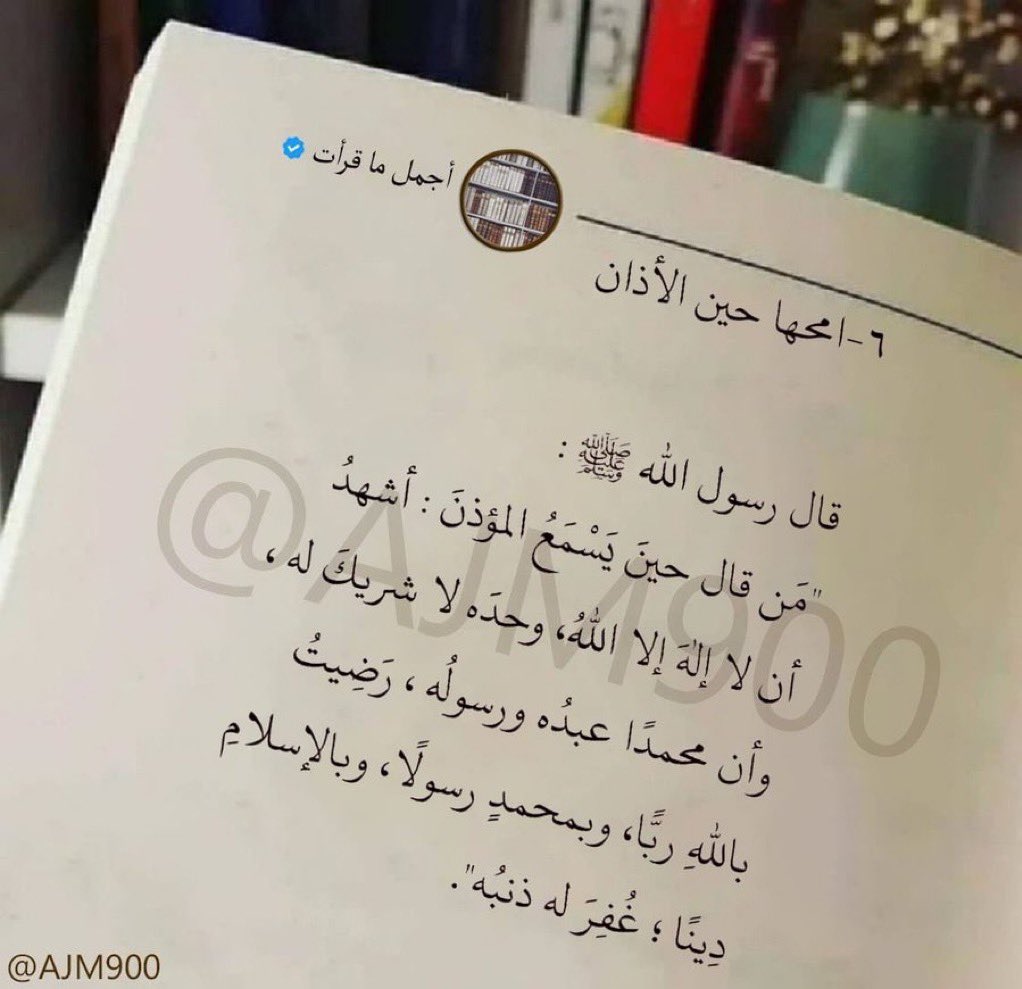 أجمل ما قرأت
٦-امحها حين الأذان
قال رسول الله ﷺ :
"مَن قال حينَ يَسْمَعُ المؤذنَ : أشهدُ
أن لا إلٰهَ إلا اللهُ، وحدَه لا شريكَ له ،
وأن محمدًا عبدُه ورسولُه ، رَضِيتُ
باللهِ ربًّا، وبمحمدٍ رسولًا، وبالإسلامِ
دِينًا ؛ غُفِرَ له ذنبُه".
@AJM900
@AJM900